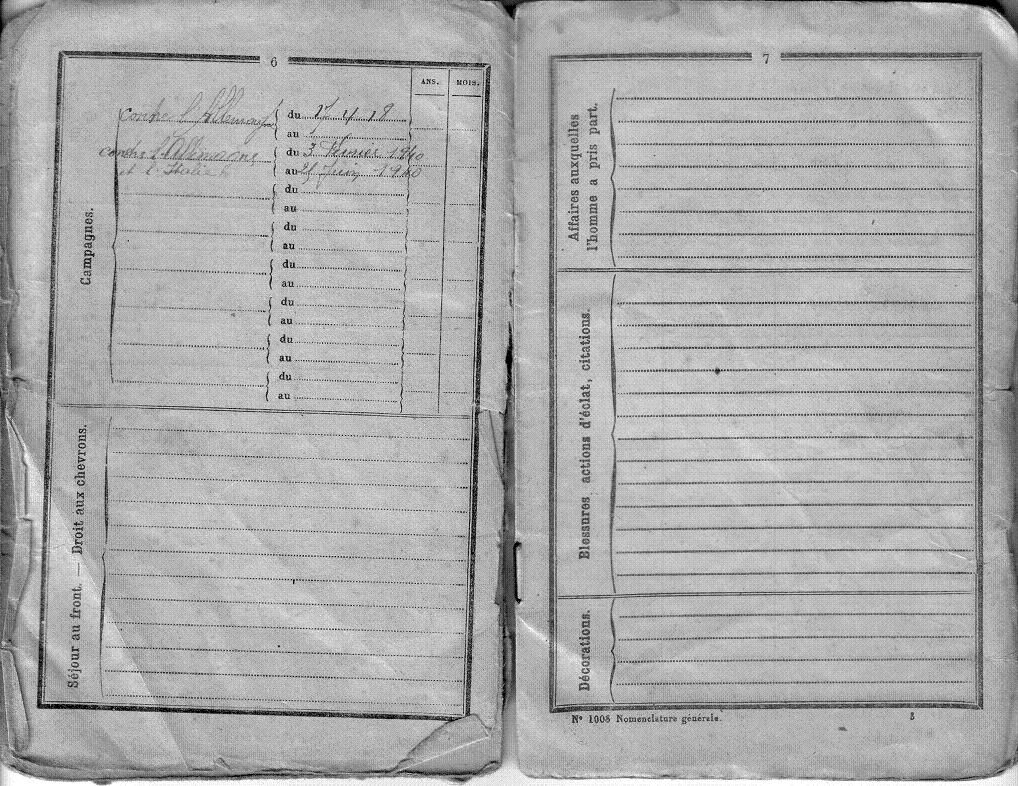 6
ANS. MOIS.
Campagnes.
contre l'Allemagne du 17 4 18
au
contre l'Allemagne du 3 Février 1940
et l'Italie au 25 Juin 1940
du
au
du
au
du
au
du
au
du
au
du
au
Séjour au front. — Droit aux chevrons.
7
Affaires auxquelles
l'homme a pris part.
Blessures, actions d'éclat, citations.
Décorations.
Nº 1005 Nomenclature générale.